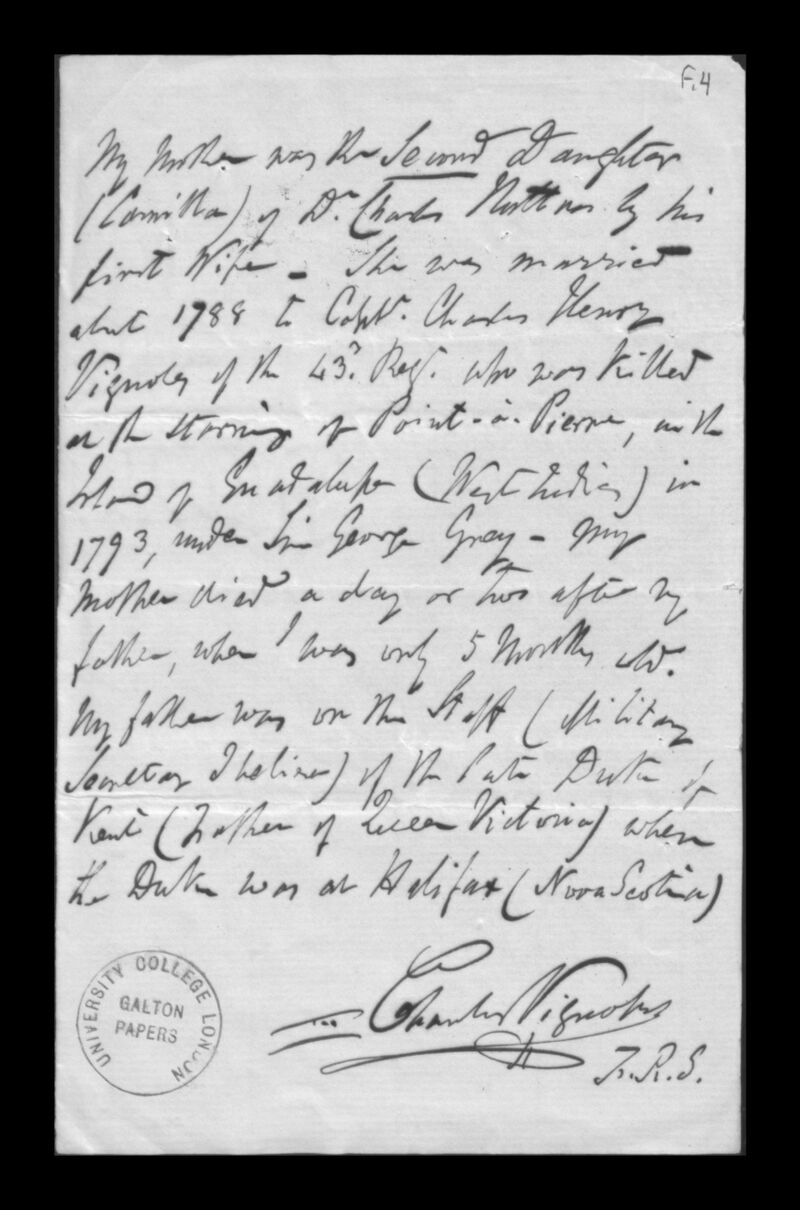 F.4
My Mother was the Second Daughter
(Camilla) of Dr. Charles Hutton by his
first Wife – She was married
about 1788 to Captn. Charles Henry
Vignoles of the 43d. Regt. who was killed
at the storming of Point-à-Pierre, in the
Island of Guadalupe (West Indies) in
1793, under Sir George Grey – My
Mother died a day or two after my
father, when I was only 5 Months old.
My father was on the Staff (Military
Secretary I believe) of the late Duke of
Kent (Father of Queen Victoria) when
the Duke was at Halifax (Nova Scotia)
Charles Vignoles
F.R.S.
UNIVERSITY COLLEGE LONDON
GALTON
PAPERS